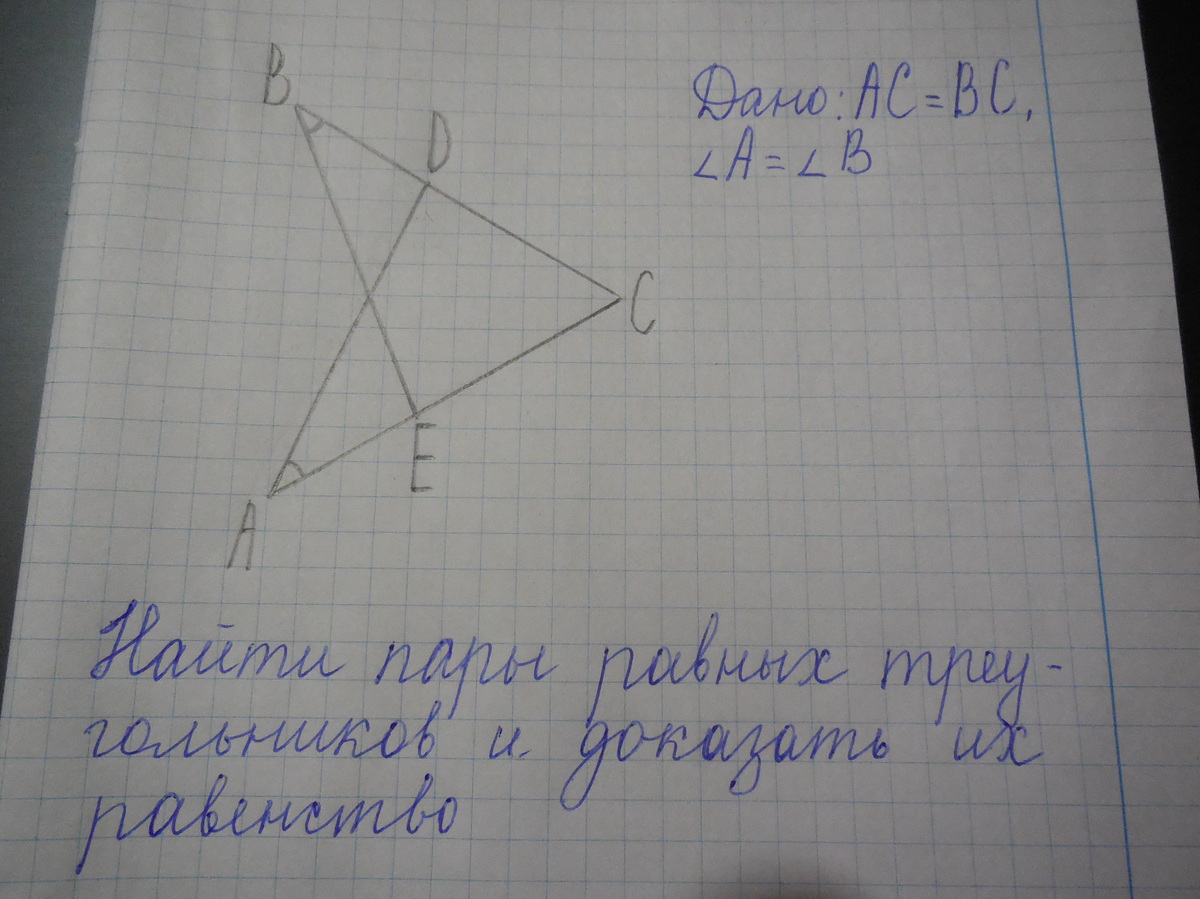 B
D
Дано: AC = BC,
∠A = ∠B
C
E
A
Найти пары равных треу-
гольников и доказать их
равенство